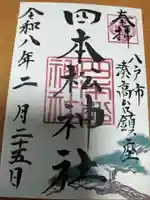 奉拝
八戸市
素高台鎮座
四本松神社
令和八年二月二十五日